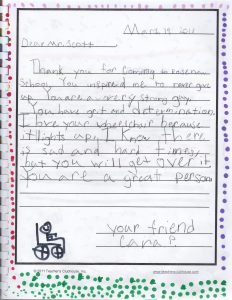 March 19 2011
Dear Mr. Scott
Thank you for coming to rosenew
School. You inspired me to never give
up. You are a very strong guy.
You have grit and determination.
I love your wheelchair because
it lights up. I know there
is sad and hard times,
but you will get over it.
You are a great person
your friend
Lana P
©2011 Teacher's Clubhouse, Inc.